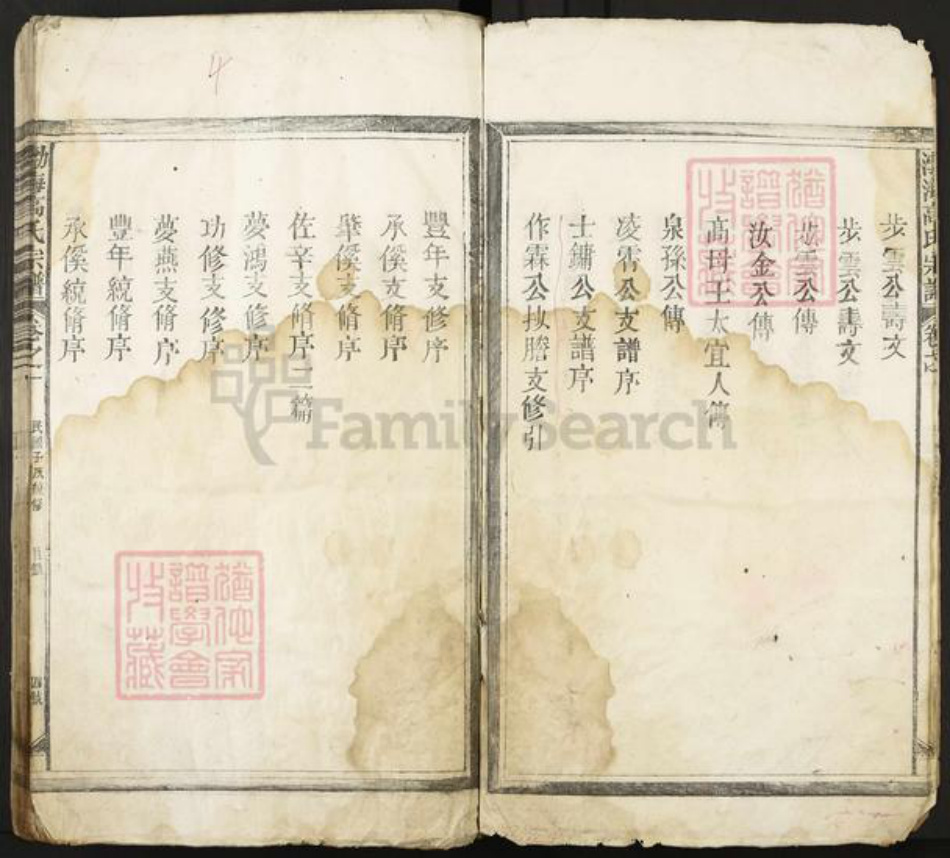 渤海高氏宗譜
步雲公壽文
步雲公壽文
步雲公傳
汝金公傳
高母王太宜人傳
泉孫公傳
凌霄公支譜序
士鏞公支譜序
作霖公抄謄支修引
豐年支修序
承傒支脩序
肇傒支脩序
佐辛支脩序二篇
夢鴻支修序
功修支修序
夢燕支脩序
豐年統脩序
承傒統脩序
渤海高氏宗譜
卷之一
4
猶他家譜學會收藏
猶他家譜學會收藏
FamilySearch